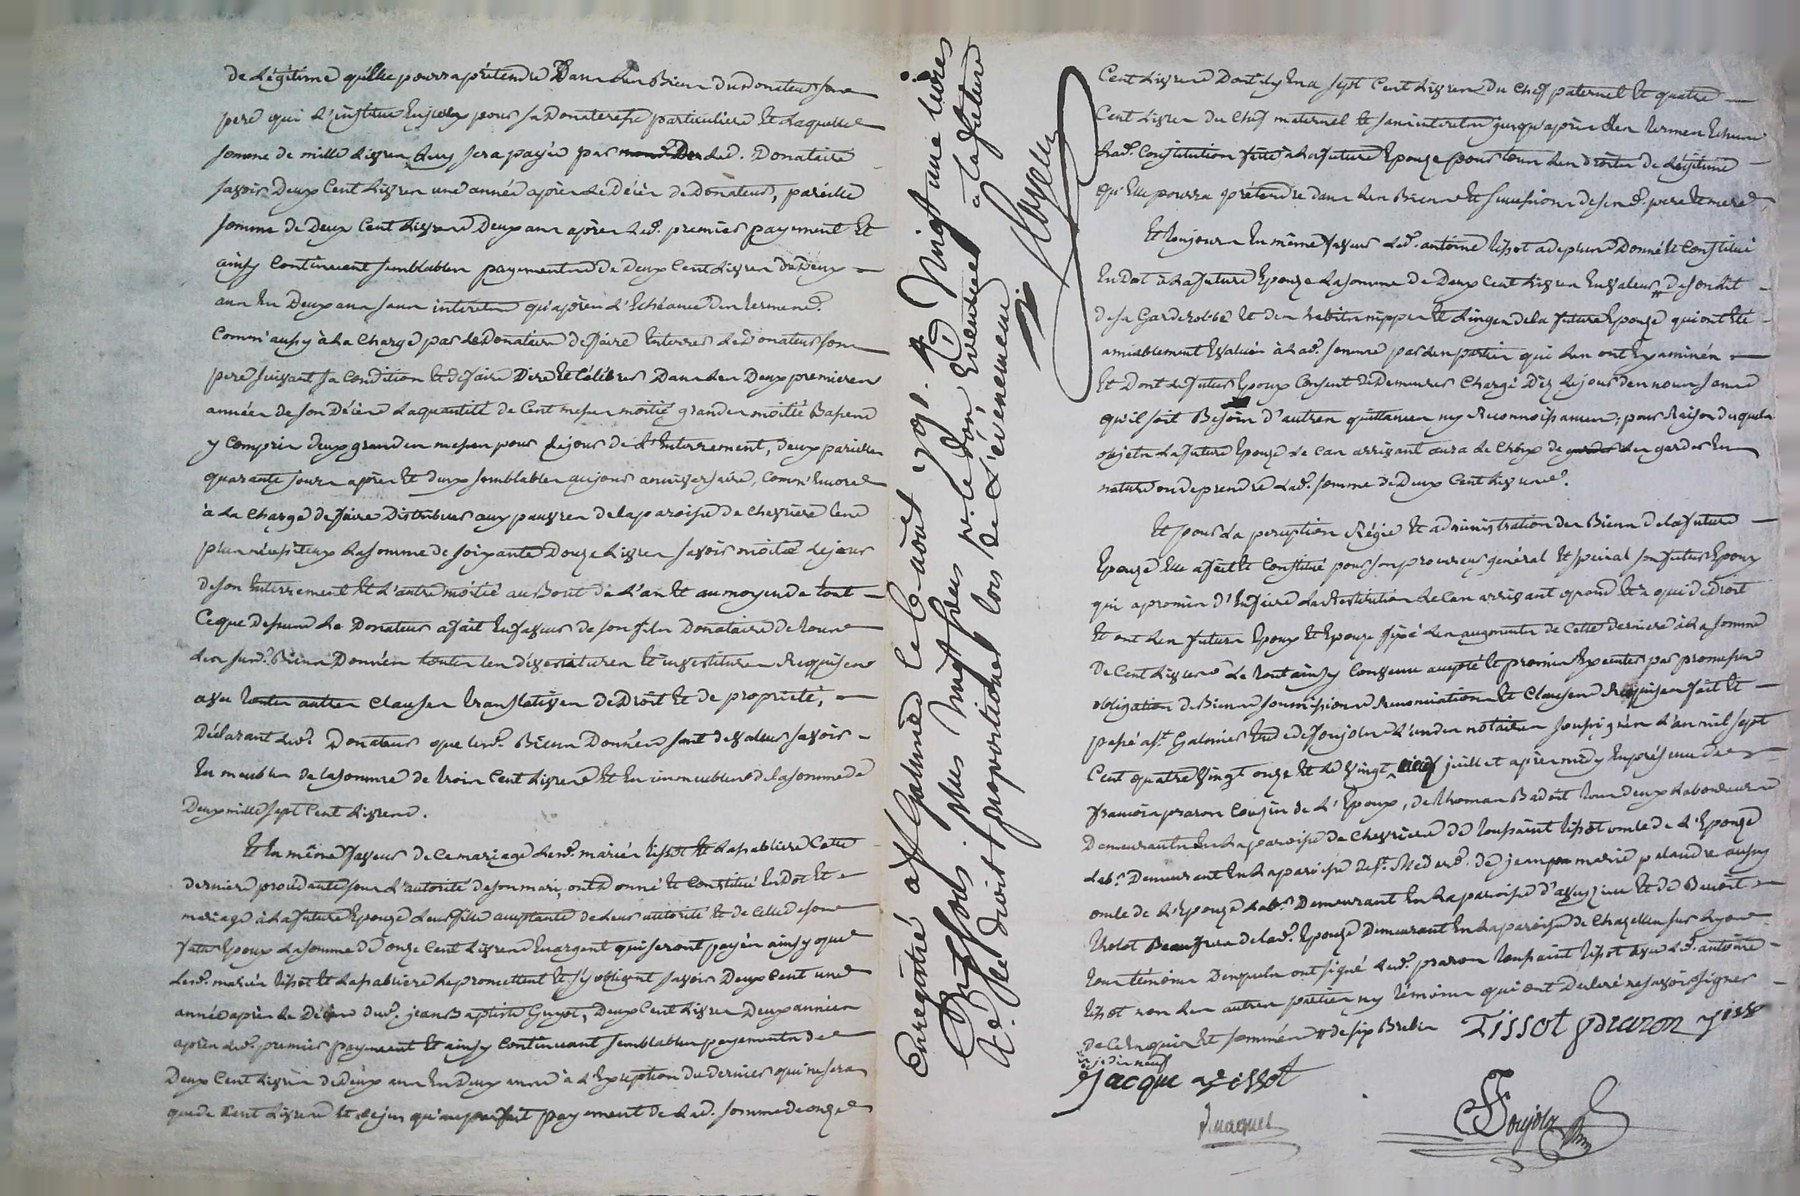 de Légitime qu'elle pourra prétendre Dans les Biens du donateur son
pere qui l'institue Enjoly pour sa Donateresse particuliere Et Laquelle
somme de mille Livres Luy sera payée par Led. Donataire
savoir Deux Cent Livres une année apres Le Décés de Donateur, pareille
somme de Deux Cent Livres Deux ans apres Led. premier payement Et
ainsy Continuant semblables payements de Deux Cent Livres de Deux
ans En Deux ans sans interets qu'apres L'Echéance des termes.
Comm'aussy à La Charge par Le Donataire de faire Enterrer Le Donateur son
pere suivant sa Condition Et de faire Dire Et Célébrer Dans Les Deux premieres
années de son Décès La quantité de Cent messes moitié grandes moitié Basses
y Compris deux grandes messes pour Le jour de L'Enterrement, deux pareilles
quarante jours apres Et deux semblables au jour anniversaire, Comm'Encore
à La Charge de faire Distribuer aux pauvres de la paroisse de Chevriere Les
plus nécessiteux La somme de soixante Douze Livres savoir moitié Le jour
de son Enterrement Et L'autre moitié au Bout de L'an Et au moyen de tout
Ce que Dessus Le Donateur a fait En faveur de son fils Donataire de tous
Les sud. Biens Donnés toutes les dévestitures Et investitures Requises
avec toutes autres Clauses translatives de Droit Et de propriété,
Déclarant Led. Donateur que Lesd. Biens Donnés sont de valeur savoir
En meubles de La somme de trois Cent Livres Et En immeubles de La somme de
Deux mille sept Cent Livres.
Et En même faveur de Ce mariage Lesd. mariés tissot Et Lapabliere Cette
derniere procédante sous L'autorité de son mari, ont Donné Et Constitué En Dot Et
mariage à La future Epouze Leur fille acceptante de Leur autorité Et de Celle de son
futur Epoux La somme de onze Cent Livres En argent qui seront payés ainsy que
Lesd. mariés tissot Et Lapabliere Le promettent Et s'y obligent savoir Deux Cent une
année après Le Décès dud. jean Baptiste Guyot, Deux Cent Livres Deux années
après Led. premier payement Et ainsy Continuant semblables payements de
Deux Cent Livres de Deux ans En Deux ans à L'Exception du dernier qui ne sera
que de Cent Livres Et Ce jusqu'au parfait payement de Lad. somme de onze
Enregistré à St Galmier le 6 aout 1791. R. Vingt une Livres
Dix sols. plus Vingt sols pr. le don Eventuel à la future
Le droit proportionel lors de L'évenement
Cent Livres Dont il y En a sept Cent Livres du Chef paternel Et quatre
Cent Livres du Chef maternel Et sans interets jusqu'après Les termes Echus
Lad. Constitution faite à La future Epouze pour tous Les droits de Légitime
qu'Elle pourra prétendre dans Les Biens Et successions de sesd. pere Et mere.
Et toujours En même faveur Led. antoine tissot a de plus Donné Et Constitué
En Dot à La future Epouze La somme de Deux Cent Livres En valeur de son Lit
de sa Garderobbe Et des habits nippes Et Linges de la future Epouze qui ont Eté
amiablement Evalués à Lad. somme par Les parties qui Les ont Examinés
Et Dont Le futur Epoux Consent de Demeurer Chargé Dès Le jour des noces sans
qu'il soit Besoin d'autres quittances ny Reconnoissances; pour Raison desquels
objets La future Epouze Le Cas arrivant aura Le Choix de Les garder En
nature ou de prendre Lad. somme de Deux Cent Livres.
Et pour La perception Régie Et administration des Biens de la future
Epouze Elle a fait Et Constitué pour son procureur général Et spécial son futur Epoux
qui a promis d'En faire La Restitution Le Cas arrivant quand Et à qui de Droit
Et ont Les futurs Epoux Et Epouze fixé Les augments de Cette derniere à La somme
de Cent Livres Le tout ainsy Convenu accepté Et promis Executer par promesses
obligation de Biens soumissions Renonciations Et Clauses Requises fait Et
passé à St. Galmier Etude de Soujols L'un des notaires soussignés L'an mil sept
Cent quatre vingt onze Et Le vingt juillet apres midy En présence de
francois praron Cousin de L'Epoux, de thomas Badoit tous deux Laboureurs
Demeurants En La paroisse de Chevriere de toussaint tissot oncle de L'Epouze
Labr. Demeurant En La paroisse de St. Mederd. de jean marie pelandre aussy
oncle de L'Epouze Labr. Demeurant En La paroisse d'aveyzieu Et de Benoit
tholot Beaufrere de Lad. Epouze Demeurant En La paroisse de Chazelles sur Lyon
tous témoins Desquels ont signé Led. praron toussaint tissot avec Led. antoine
tissot non Les autres parties ny témoins qui ont Declaré ne savoir signer
de Ce Enquis Et sommés # de six Brebis
Tissot praron Tissot
dix neuf
Jacque Tissot
Soujols